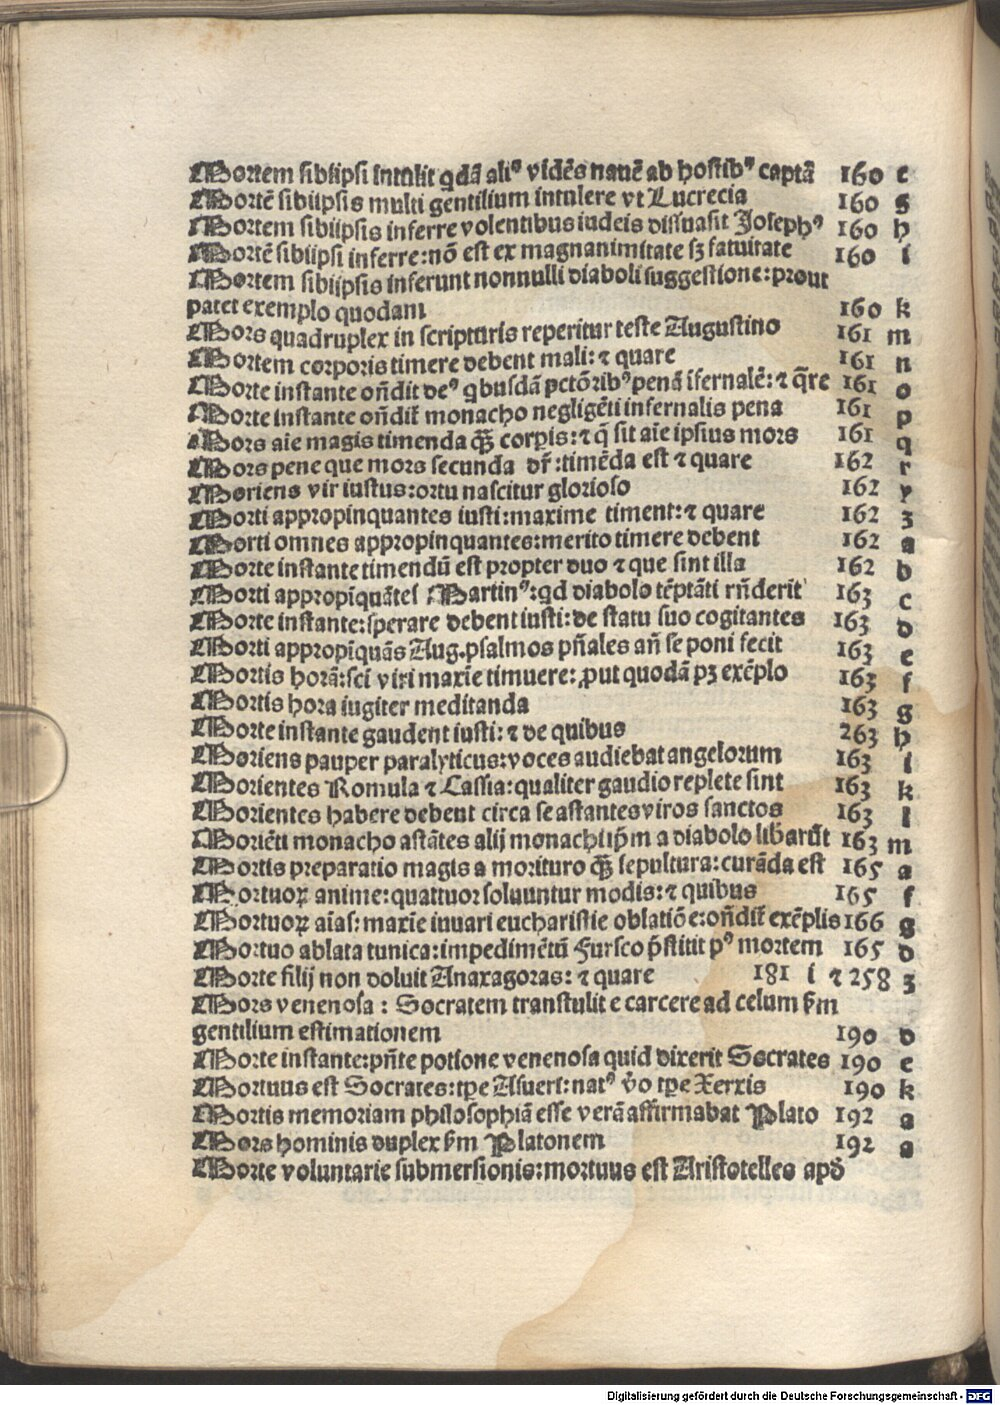 Mortem sibiipsi intulit qdā aliꝰ vidēs nauē ab hostibꝰ captā 160 e
Mortē sibiipsis multi gentilium intulere vt Lucrecia 160 g
Mortem sibiipsis inferre volentibus iudeis dissuasit Josephꝰ 160 h
Mortē sibiipsi inferre: nō est ex magnanimitate sꝫ fatuitate 160 i
Mortem sibiipsis inferunt nonnulli diaboli suggestione: prout
patet exemplo quodam 160 k
Mors quadruplex in scripturis reperitur teste Augustino 161 m
Mortem corporis timere debent mali: ⁊ quare 161 n
Morte instante oñdit deꝰ qbusdā pctōribꝰ penā īfernalē: ⁊ q̄re 161 o
Morte instante oñdit̄ monacho negligēti infernalis pena 161 p
Mors aīe magis timenda qꝫ̄ corꝑis: ⁊ q̄ sit aīe ipsius mors 161 q
Mors pene que mors secunda dr̄: timēda est ⁊ quare 162 r
Moriens vir iustus: ortu nascitur glorioso 162 y
Morti appropinquantes iusti: maxime timent: ⁊ quare 162 z
Morti omnes appropinquantes: merito timere debent 162 a
Morte instante timendū est propter duo ⁊ que sint illa 162 b
Morti appropīquātes Martinꝰ: qd diabolo tēptāti rñderit 163 c
Morte instante: sperare debent iusti: de statu suo cogitantes 163 d
Morti appropīquās Aug. psalmos pñales añ se poni fecit 163 e
Mortis horā: sci viri maxīe timuere: ꝓut quodā pꝫ exēplo 163 f
Mortis hora iugiter meditanda 163 g
Morte instante gaudent iusti: ⁊ de quibus 263 h
Moriens pauper paralyticus: voces audiebat angelorum 163 i
Morientes Romula ⁊ Cassia: qualiter gaudio replete sint 163 k
Morientes habere debent circa se astantes viros sanctos 163 l
Moriēti monacho astātes alij monachi ip̄m a diabolo libarūt 163 m
Mortis preparatio magis a morituro qꝫ̄ sepultura: curāda est 165 a
Mortuoꝝ anime: quattuor soluuntur modis: ⁊ quibus 165 f
Mortuoꝝ aīas: maxīe iuuari eucharistie oblatiōe: oñdit̄ exēplis 166 g
Mortuo ablata tunica: impedimētū Furseo p̄stitit pꝰ mortem 165 d
Morte filij non doluit Anaxagoras: ⁊ quare 181 i ⁊ 258 z
Mors venenosa: Socratem transtulit e carcere ad celum ẜm
gentilium estimationem 190 d
Morte instante: pñte potione venenosa quid dixerit Socrates 190 e
Mortuus est Socrates: tꝑe Asueri: natꝰ v̄o tꝑe Xerxis 190 k
Mortis memoriam philosophiā esse verā affirmabat Plato 192 a
Mors hominis duplex ẜm Platonem 192 a
Morte voluntarie submersionis: mortuus est Aristotelles apd̄
Digitalisierung gefördert durch die Deutsche Forschungsgemeinschaft - DFG